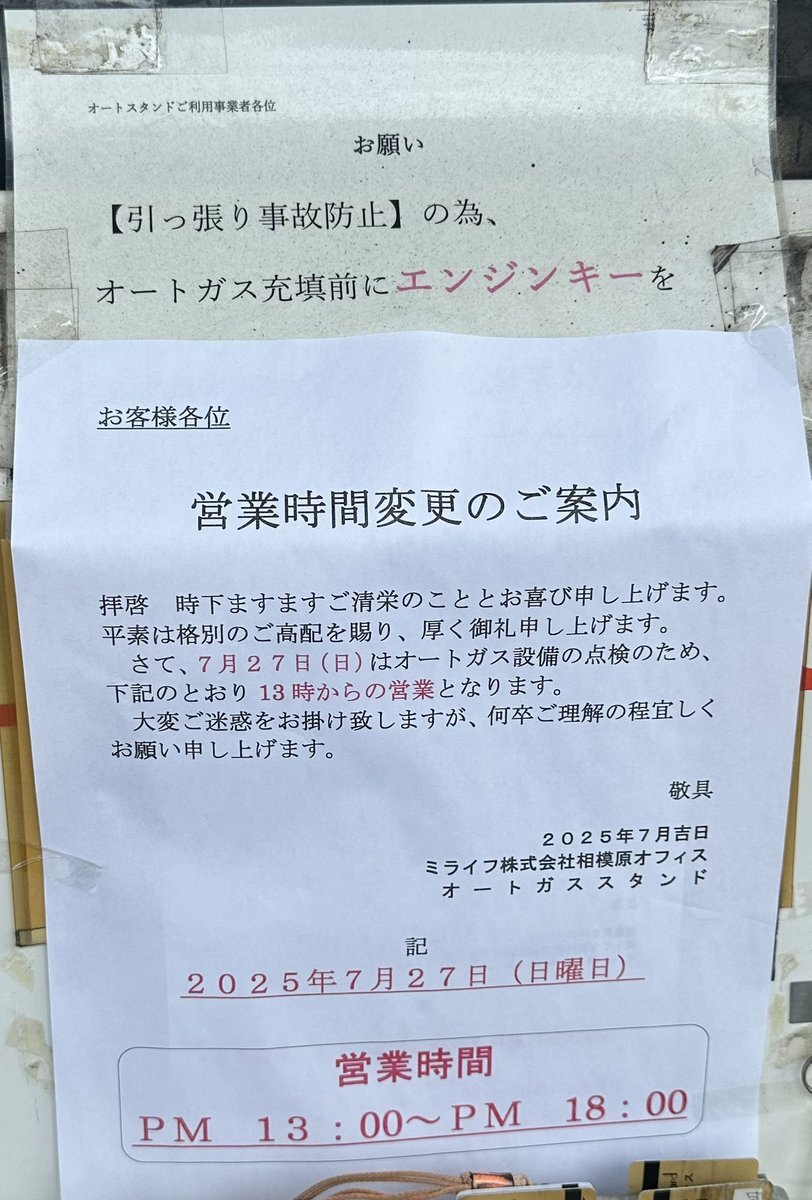 オートスタンドご利用事業者各位
お願い
【引っ張り事故防止】の為、
オートガス充填前にエンジンキーを
お客様各位
営業時間変更のご案内
拝啓　時下ますますご清栄のこととお喜び申し上げます。
平素は格別のご高配を賜り、厚く御礼申し上げます。
さて、７月２７日(日)はオートガス設備の点検のため、
下記のとおり 13 時からの営業となります。
大変ご迷惑をお掛け致しますが、何卒ご理解の程宜しく
お願い申し上げます。
敬具
２０２５年７月吉日
ミライフ株式会社相模原オフィス
オートガススタンド
記
２０２５年７月２７日（日曜日）
営業時間
ＰＭ　１３：00～ＰＭ　18：00